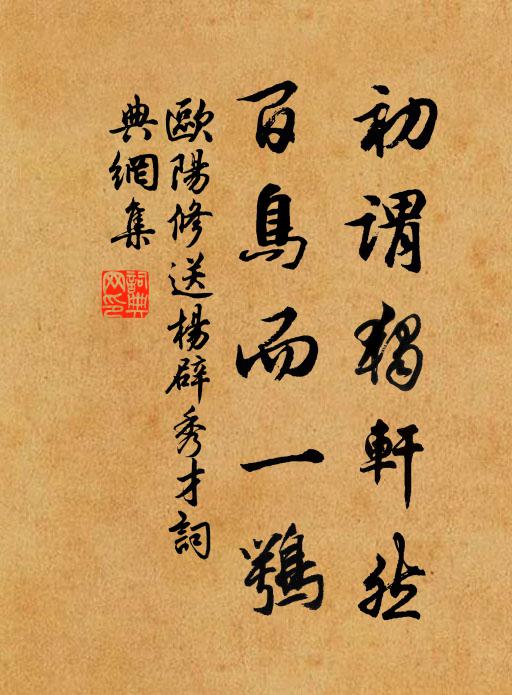 初謂獨軒然
百鳥而一鶚
歐陽修送楊辟秀才詞
典網集
詞典
网印